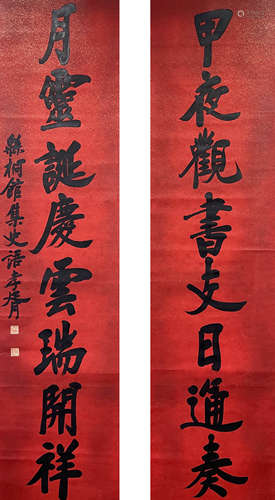 甲夜觀書支日通奏
月靈誕慶雲瑞開祥
緜桐館集史語孝胥